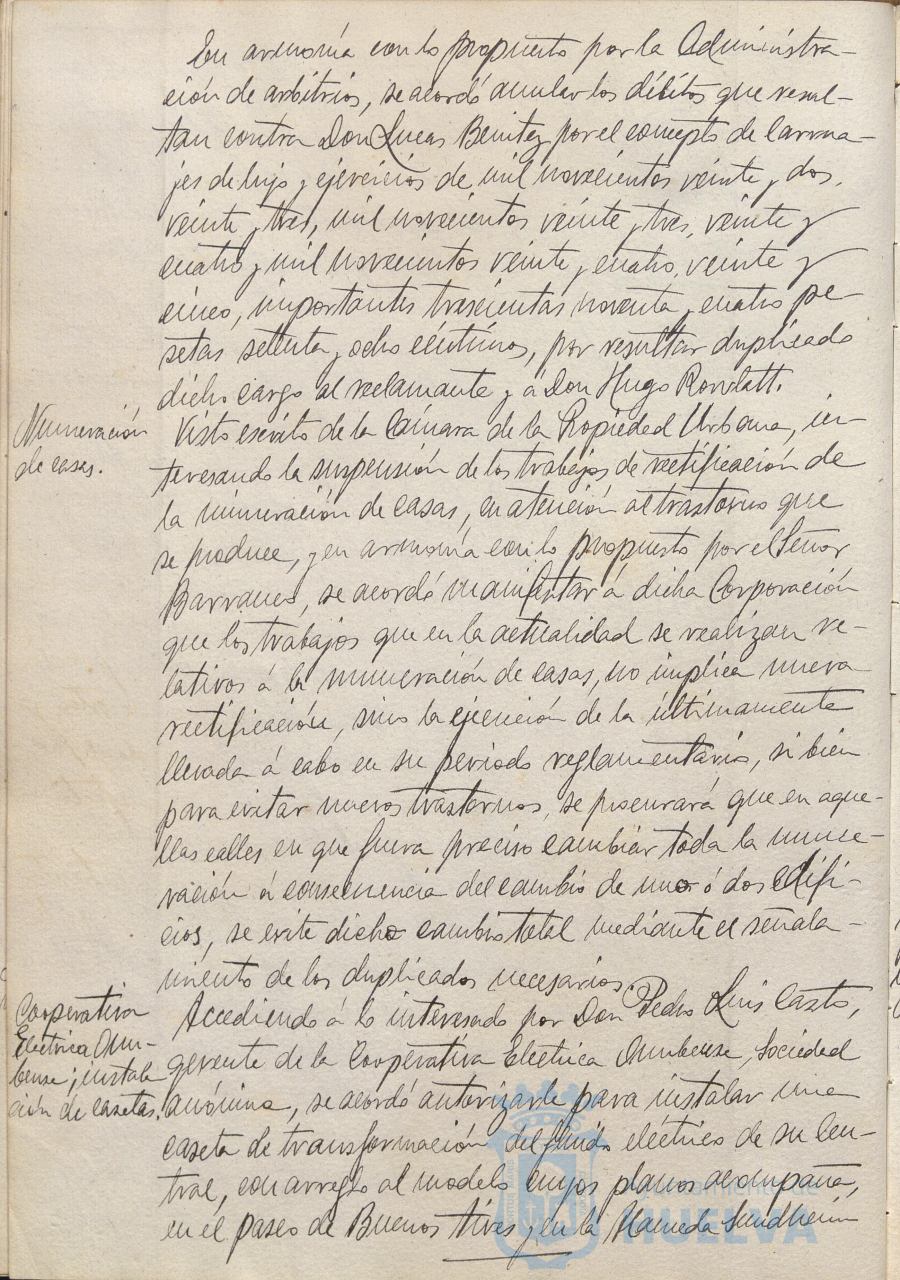 En armonía con lo propuesto por la Administra-
ción de arbitrios, se acordó anular los débitos que resul-
tan contra Don Lucas Benitez por el concepto de Carrua-
jes de lujo y ejercicios de mil novecientos veinte y dos,
veinte y tres, mil novecientos veinte y tres, veinte y
cuatro y mil novecientos veinte y cuatro, veinte y
cinco, importantes trescientas noventa y cuatro pe-
setas setenta y ocho céntimos, por resultar duplicado
dicho cargo al reclamante y á Don Hugo Rowlatt.
Numeración
de casas.
Visto escrito de la Cámara de la Propiedad Urbana, in-
teresando la suspensión de los trabajos de rectificación de
la numeración de casas, en atención al trastorno que
se produce, y en armonía con lo propuesto por el Señor
Barranco, se acordó manifestar á dicha Corporación
que los trabajos que en la actualidad se realizan re-
lativos á la numeración de casas, no implica nueva
rectificación, sino la ejecución de la últimamente
llevada á cabo en su periodo reglamentario, si bien
para evitar nuevos trastornos, se procurará que en aque-
llas calles en que fuera preciso cambiar toda la nume-
ración á consecuencia del cambio de uno ó dos edifi-
cios, se evite dicho cambio total mediante el señala-
miento de los duplicados necesarios.
Cooperativa
Electrica Onu-
bense; instala
ción de casetas.
Accediendo á lo interesado por Don Pedro Luis Casto,
gerente de la Cooperativa Electrica Onubense, Sociedad
anónima, se acordó autorizarle para instalar una
caseta de transformación del fluido eléctrico de su Cen-
tral, con arreglo al modelo cuyos planos acompaña,
en el paseo de Buenos Aires y en la Alameda Sundheim
Ayuntamiento de
HUELVA